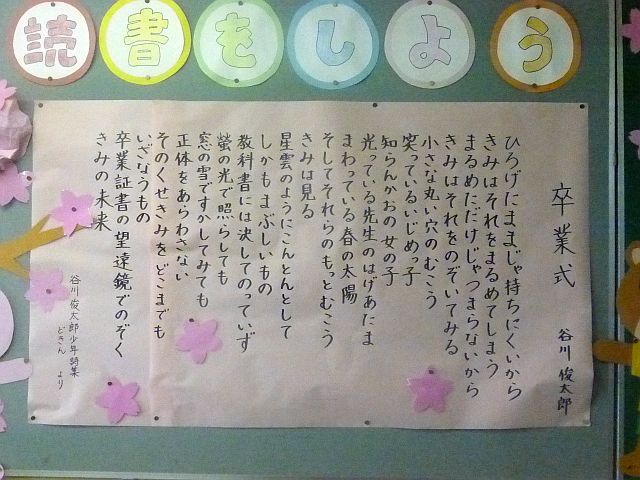 読書をしよう
卒業式
谷川俊太郎
ひろげたままじゃ持ちにくいから
きみはそれをまるめてしまう
まるめただけじゃつまらないから
きみはそれをのぞいてみる
小さな丸い穴のむこう
笑っているいじめっ子
知らんかおの女の子
光っている先生のはげあたま
まわっている春の太陽
そしてそれらのもっとむこう
きみは見る
星雲のようにこんとんとして
しかもまぶしいもの
教科書には決してのっていず
蛍の光で照らしても
窓の雪ですかしてみても
正体をあらわさない
そのくせきみをどこまでも
いざなうもの
卒業証書の望遠鏡でのぞく
きみの未来
谷川俊太郎少年詩集
どきん より